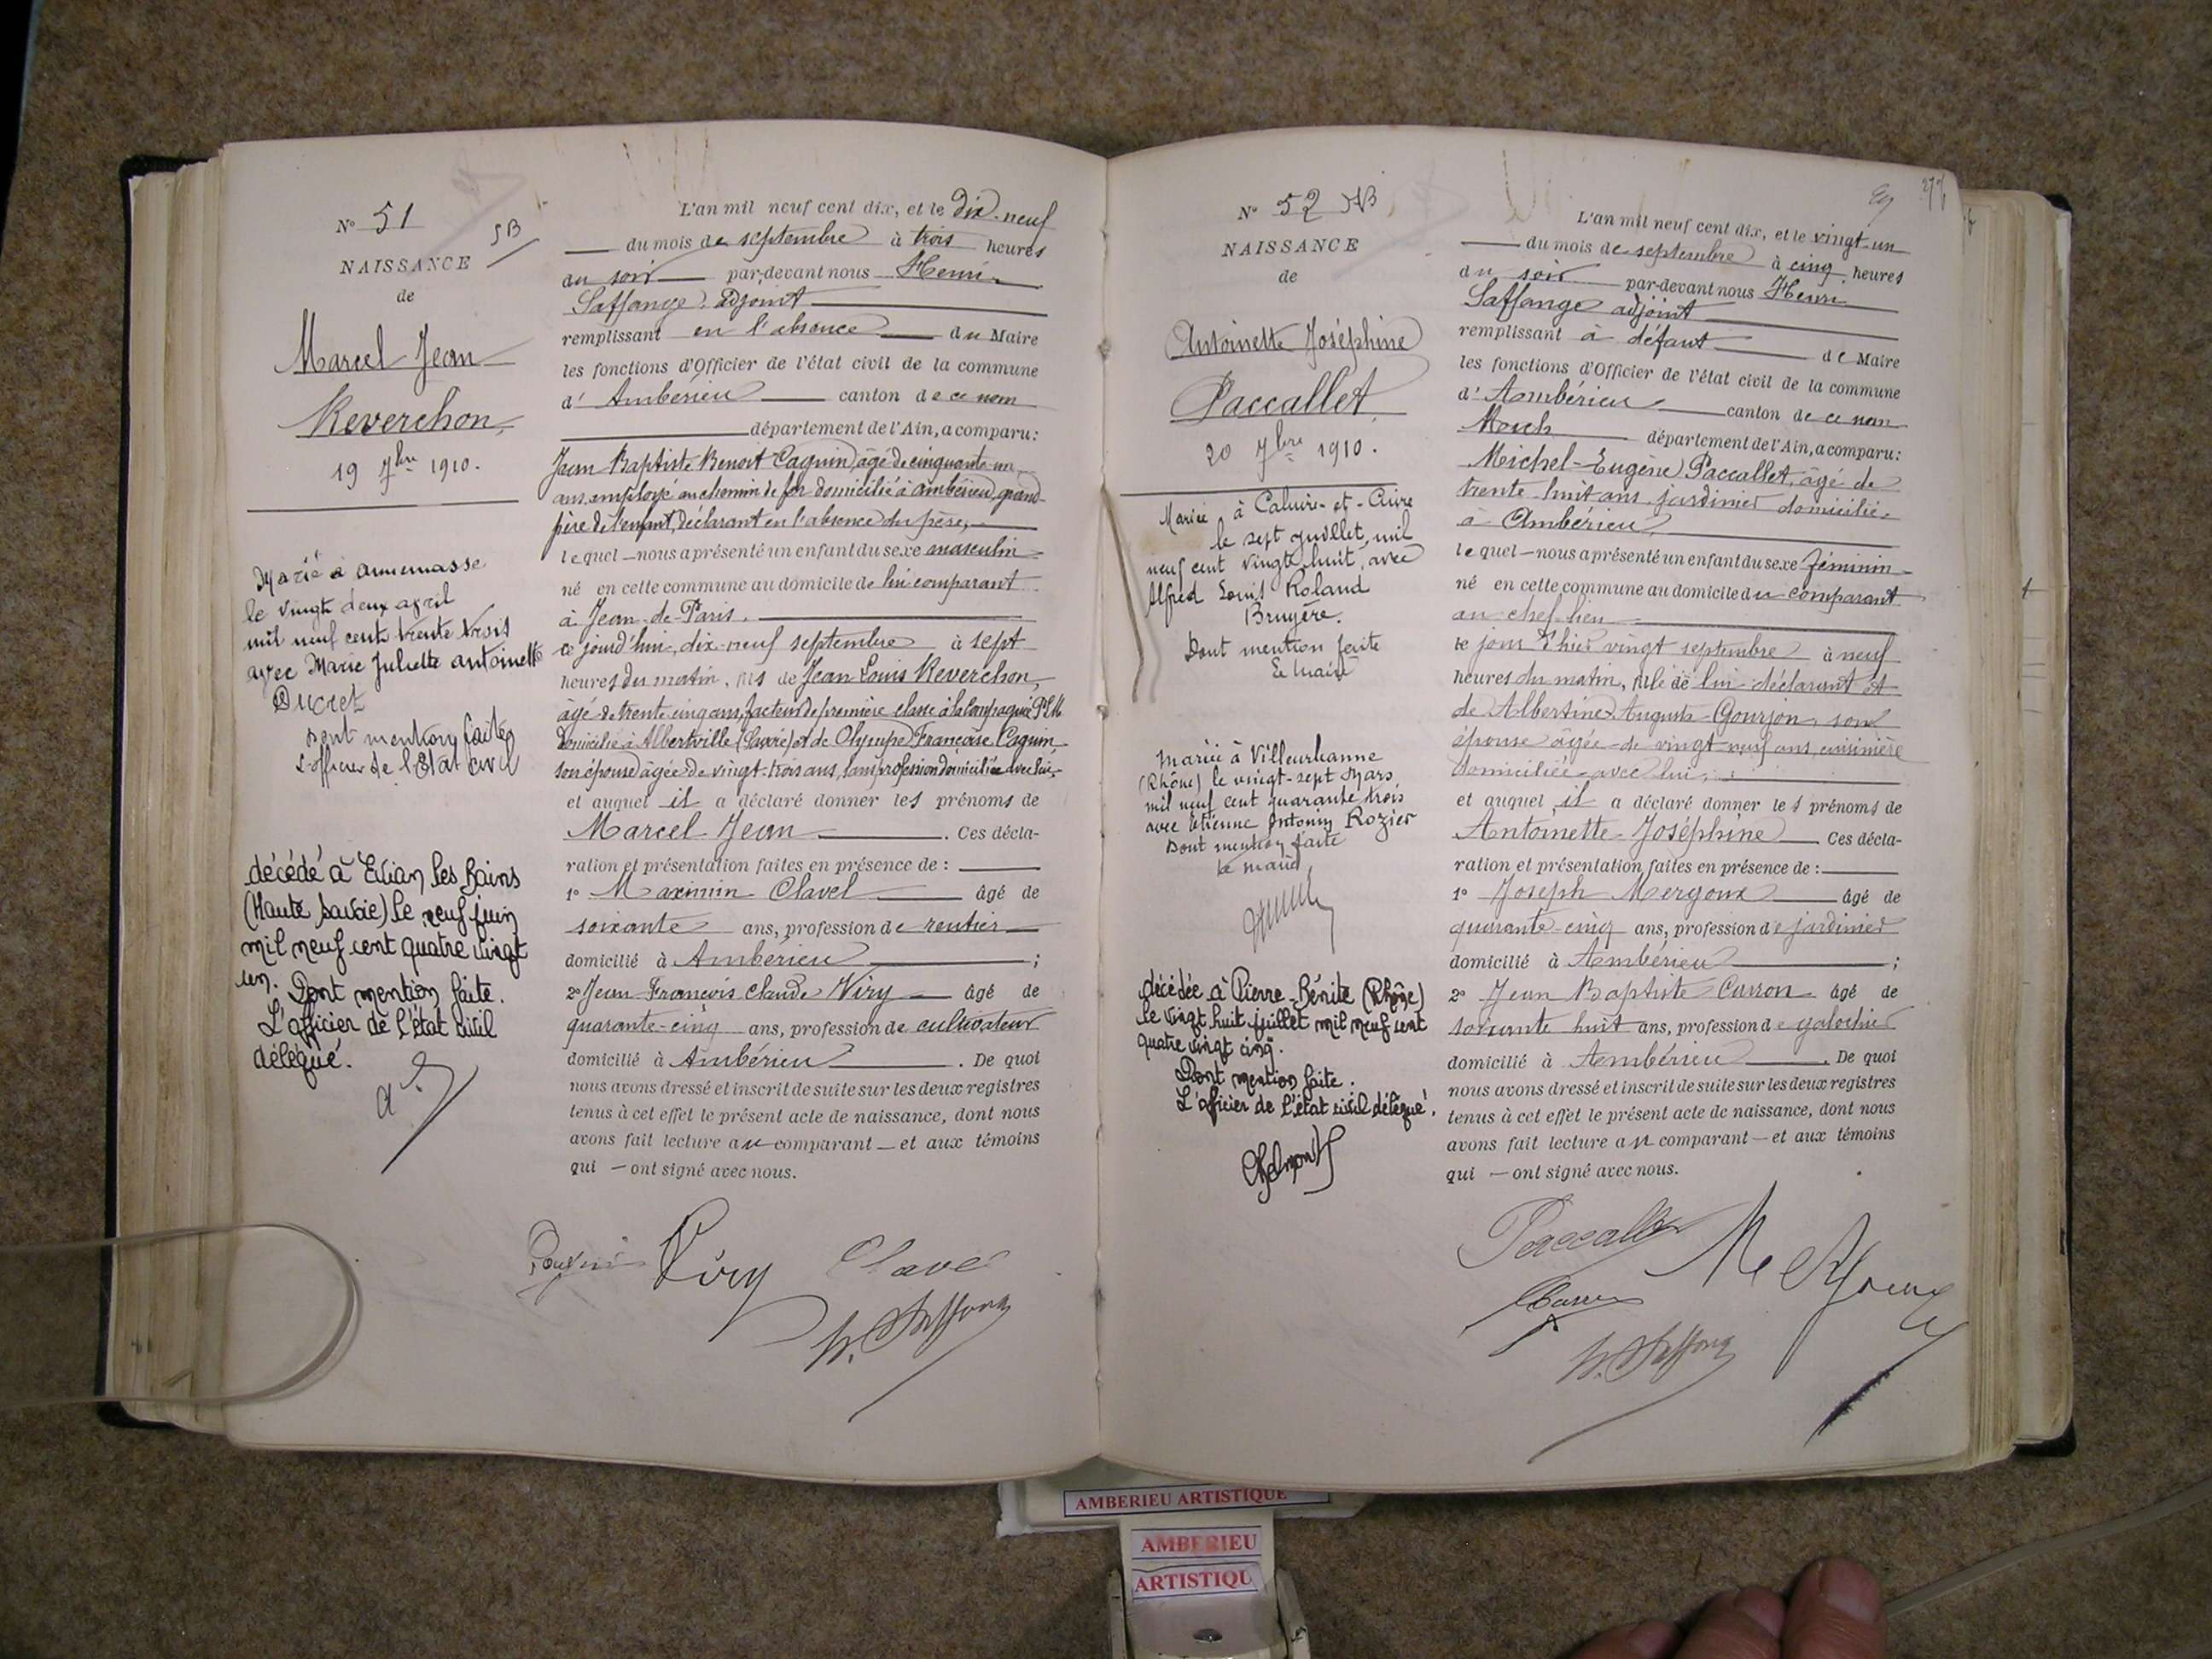 N° 51
SB
NAISSANCE
de
Marcel Jean
Reverchon
19 7bre 1910.
Marié à Annemasse
le vingt deux avril
mil neuf cent trente trois
avec Marie Juliette Antoinette
Ducret
Dont mention faite
L'officier de l'Etat Civil
décédé à Evian les Bains
(Haute Savoie) le neuf juin
mil neuf cent quatre vingt
un. Dont mention faite.
L'officier de l'état civil
délégué.
L'an mil neuf cent dix, et le dix-neuf
du mois de septembre à trois heures
du soir par-devant nous Henri
Saffange, adjoint
remplissant en l'absence du Maire
les fonctions d'Officier de l'état civil de la commune
d' Ambérieu canton de ce nom
département de l'Ain, a comparu:
Jean Baptiste Benoit Caguin, âgé de cinquante-un
ans, employé au chemin de fer domicilié à Ambérieu, grand-
père de l'enfant, déclarant en l'absence du père,
lequel nous a présenté un enfant du sexe masculin
né en cette commune au domicile de lui comparant
à Jean-de-Paris,
ce jourd'hui, dix-neuf septembre à sept
heures du matin, fils de Jean Louis Reverchon,
âgé de trente cinq ans, facteur de première classe à la Compagnie P.L.M
domicilié à Albertville (Savoie) et de Olympe Françoise Caguin
son épouse âgée de vingt-trois ans, sans profession domiciliée avec lui,
et auquel il a déclaré donner les prénoms de
Marcel Jean . Ces décla-
ration et présentation faites en présence de :
1° Maximin Clavel âgé de
soixante ans, profession de rentier
domicilié à Ambérieu ;
2° Jean François Claude Viry âgé de
quarante-cinq ans, profession de cultivateur
domicilié à Ambérieu . De quoi
nous avons dressé et inscrit de suite sur les deux registres
tenus à cet effet le présent acte de naissance, dont nous
avons fait lecture au comparant — et aux témoins
qui — ont signé avec nous.
Viry Clavel
H. Saffange
N° 52
NAISSANCE
de
Antoinette Joséphine
Paccallet
20 7bre 1910.
Mariée à Caluire-et-Cuire
le sept juillet, mil
neuf cent vingt huit, avec
Alfred Louis Roland
Bruyère.
Dont mention faite
Le Maire
Mariée à Villeurbanne
(Rhône) le vingt-sept Mars
mil neuf cent quarante trois
avec Etienne Antonin Rozier
Dont mention faite
Le Maire
décédée à Pierre-Bénite (Rhône)
le vingt huit juillet mil neuf cent
quatre vingt cinq.
Dont mention faite.
L'officier de l'état civil délégué.
L'an mil neuf cent dix, et le vingt-un
du mois de septembre à cinq heures
du soir par-devant nous Henri
Saffange adjoint
remplissant à défaut de Maire
les fonctions d'Officier de l'état civil de la commune
d' Ambérieu canton de ce nom
département de l'Ain, a comparu:
Michel-Eugène Paccallet, âgé de
trente-huit ans, jardinier domicilié
à Ambérieu,
lequel — nous a présenté un enfant du sexe féminin
né en cette commune au domicile du comparant
au chef-lieu
le jour d'hier vingt septembre à neuf
heures du matin, fille de lui déclarant et
de Albertine Augusta Gourjon, son
épouse âgée de vingt-neuf ans, cuisinière
domiciliée avec lui,
et auquel il a déclaré donner les prénoms de
Antoinette Joséphine Ces décla-
ration et présentation faites en présence de :
1° Joseph Mergoux âgé de
quarante-cinq ans, profession de jardinier
domicilié à Ambérieu ;
2° Jean Baptiste Carron âgé de
soixante huit ans, profession de galochier
domicilié à Ambérieu . De quoi
nous avons dressé et inscrit de suite sur les deux registres
tenus à cet effet le présent acte de naissance, dont nous
avons fait lecture au comparant — et aux témoins
qui — ont signé avec nous.
Paccallet Mergoux
Carron
H. Saffange
AMBERIEU ARTISTIQUE
AMBERIEU
ARTISTIQU